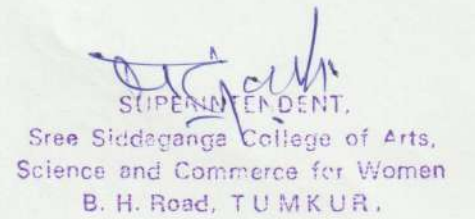 SUPERINTENDENT,
Sree Siddaganga College of Arts,
Science and Commerce for Women
B. H. Road, TUMKUR.